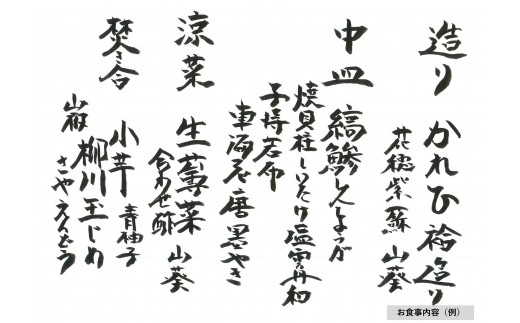 造り かれひ 裕造り
花穂紫蘇 山葵
中皿 縞鯵しんじょうが
焼貝柱しいたけ塩雲丹和
子持若布
車海老磨墨やき
涼菜 生蓴菜 山葵
合わせ酢
焚き合 小芋 青柚子
柳川玉じめ
さやえんどう
お食事内容（例）